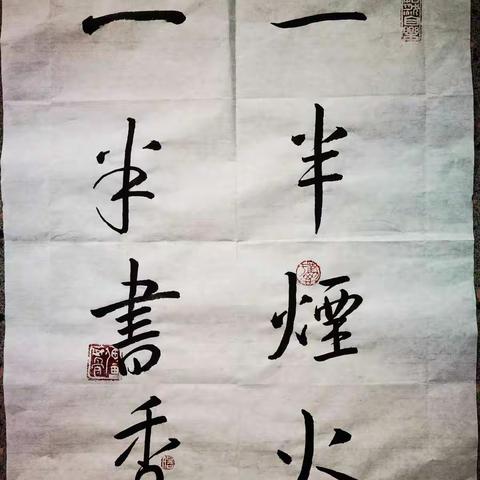 一半煙火
一半書香